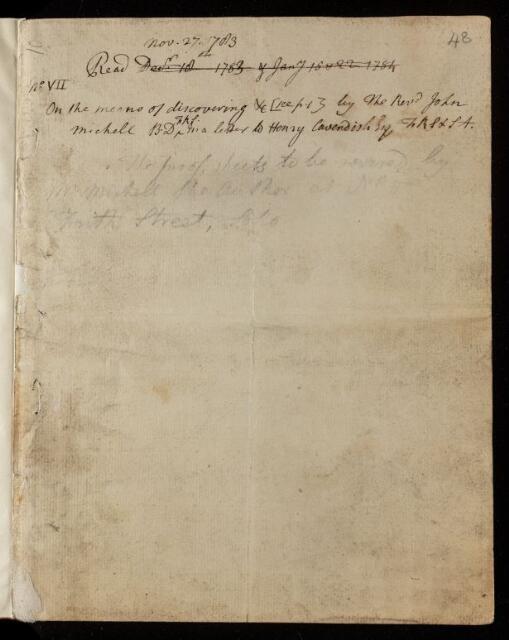 48
Nov. 27. 1783
Read Decr. 18th 1783 & Jany 15 & 22 1784
No VII
On the means of discovering &c [see p 1] by the Revd John
Michell BD. FRS. in a letter to Henry Cavendish Esq FRS & SA.
proof sheets to be revised by
Mr Michell the author at No
Frith Street, Soho